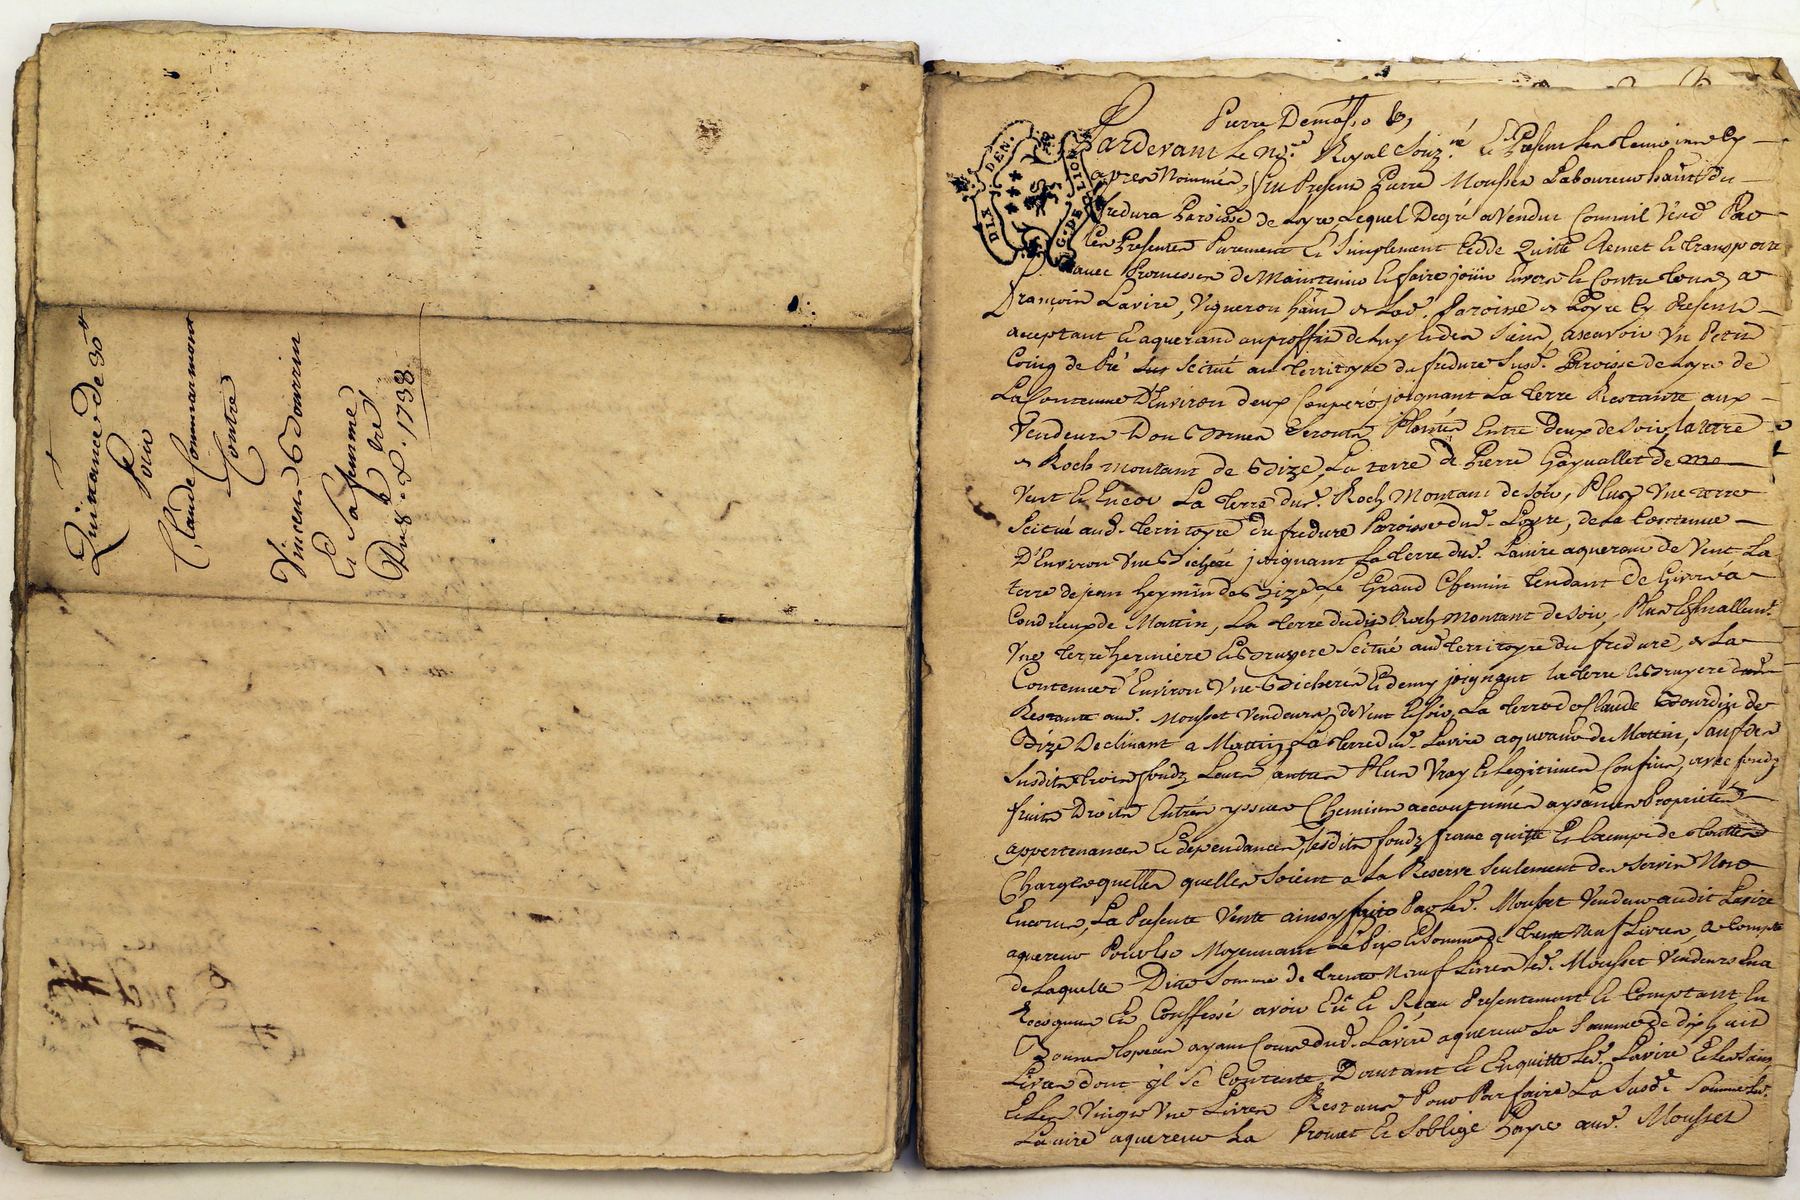 Quittance de 30 ₶
Pour
Claude Commarmont
Contre
Vincent Bonnin
Et Sa femme
Du 8 bre 1738
DIX DEN.
G. DE LION
Pierre Demasso
Pardevant le No.re Royal Souz.né Et Present les temoins cy
apres Nommés, fut Present Pierre Mousset Laboureur ha͠nt du
fredure Paroisse de Loyre Lequel De gré a Vendu Comme il Vend Par
Ces Presentes Purement Et Simplement Cedde Quitte Remet Et transporte
avec Promesses de Maintenir Et faire joüir Envers Et Contre tous a
François Lavire, Vigneron ha͠nt de Lad. Paroisse de Loyre Cy Present
acceptant Et aquerand au proffit de luy Et des Siens, ascavoir Un Petit
Coing de Pré Scitué au territoyre du fredure Susd. Paroisse de Loyre de
La Contenue D'Environ deux Couperé joignant La terre Restante aux
Vendeurs Don Bornes Seronts Plantés Entre Deux de Soir, la terre
de Roch Montant de Bize, La terre de Pierre Gayuallet de
Vent Et Encor La terre dud. Roch Montant de Soir, Plus Une terre
Scitué aud. territoyre du fredure Paroisse dud. Loyre, de La Contenue
D'Environ Une Bicheré joignant La terre dud. Lavire aquereur de Vent La
terre de jean heymin de Bize, Le Grand Chemin tendant de Givors a
Condrieux de Mattin, La terre dudit Roch Montant de Soir, Plus Et finallem.t
Une terre hermiere Et Bruyere Scitué aud. territoyre du fredure, de La
Contenue d'Environ Une Bicherés Et demy joignant la terre Et Bruyere
Restante aud. Mousset Vendeurs, de Vent Et Soir, La terre de Claude Bourdin de
Bize Declinant a Mattin, La terre dud. Lavire aquereur de Mattin, Sauf des
Susdits trois fondz Leurs autres Plus Vray Et Legitimes Confins, avec fondz
fruits Droits Entrés yssues Chemins accoutumés aysances Proprietés
appartenances Et dependances, lesdits fondz franc quitte Et Exempt de touttes
Charges quelles quelles Soient a La Reserve Seulement des Servis Nore
Encorus, La Presente Vente ainsy faite Par Led. Mousset Vendeur audit Lavire
aquereur Pour Et Moyennant Le Prix Et Somme de trente Neuf Livres, a Compte
de Laquelle Ditte Somme de trente Neuf Livres Led. Mousset Vendeurs En a
Receu Et Conffessé avoir Eü Et Receu Presentement Et Comptant En
Bonnes Especes ayant Cours dud. Lavire aquereur La Somme de dix huit
Livres dont jl Se Contente, D'autant Et En quitte Led. Lavire Et les Siens
Et Les Vingt Une Livres Restant Pour Parfaire La Susd.e Somme Led.
Lavire aquereur La Promet Et S'oblige Payer aud. Mousset